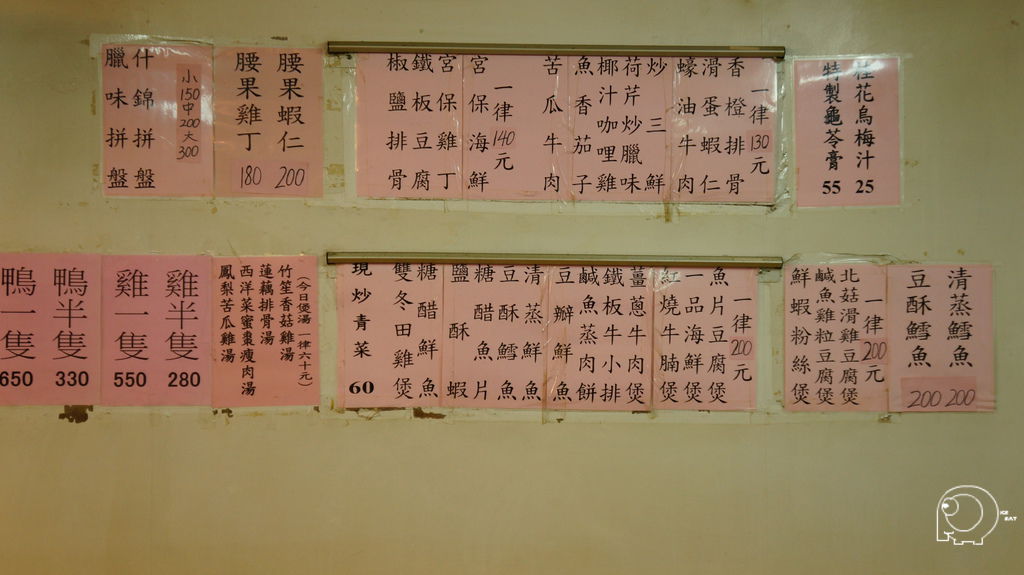 桂花烏梅汁 25
特製龜苓膏 55
一律130元
香橙排骨
滑蛋蝦仁
蠔油牛肉
炒三鮮
荷芹炒臘味
椰汁咖哩雞
魚香茄子
苦瓜牛肉
一律140元
宮保海鮮
宮保雞丁
鐵板豆腐
椒鹽排骨
腰果蝦仁 200
腰果雞丁 180
小150中200大300
什錦拼盤
臘味拼盤
清蒸鱈魚 200
豆酥鱈魚 200
一律200元
北菇滑雞豆腐煲
鹹魚雞粒豆腐煲
鮮蝦粉絲煲
一律200元
魚片豆腐煲
一品海鮮煲
紅燒牛腩煲
薑蔥牛肉煲
鐵板牛小排
鹹魚蒸肉餅
豆辦鮮魚
清蒸鮮魚
豆酥鱈魚
糖醋魚片
鹽酥蝦
糖醋鮮魚
雙冬田雞煲
現炒青菜 60
(今日煲湯一律六十元)
竹笙香菇雞湯
蓮藕排骨湯
西洋菜蜜棗瘦肉湯
鳳梨苦瓜雞湯
雞半隻 280
雞一隻 550
鴨半隻 330
鴨一隻 650